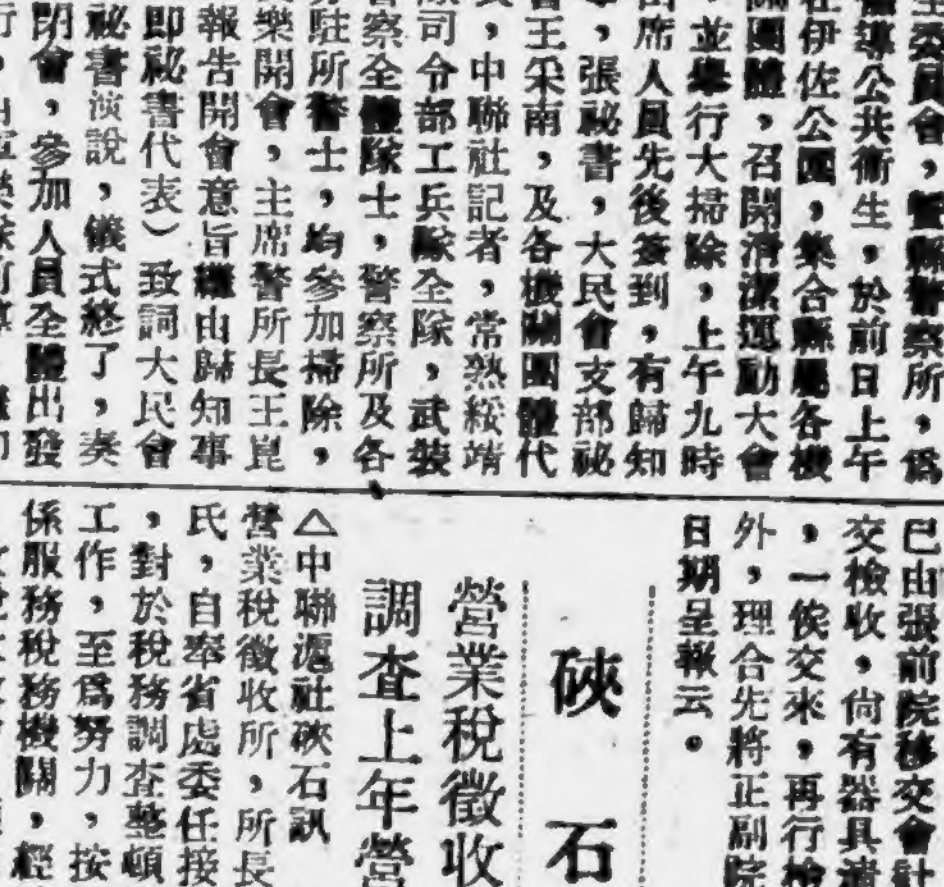 主委員會，暨縣警察所，爲
導公共衞生，於前日上午
在伊佐公園，集合縣屬各機
關團體，召開淸潔運動大會
，並舉行大掃除，上午九時
出席人員先後簽到，有歸知
，張秘書，大民會支部祕
王采南，及各機關團體代
，中聯社記者，常熟綏靖
司令部工兵隊全隊，武裝
警察全體隊士，警察所及各
駐所警士，均參加掃除，
樂開會，主席警所長王崑
報告開會意旨繼由歸知事
卽祕書代表）致詞大民會
祕書演說，儀式終了，奏
閉會，參加人員全體出發
已由張前院移交會計
交檢收，尙有器具淸
，一俟交來，再行檢
外，理合先將正副院
日期呈報云。
硤石
營業稅徵收
調查上年營
△中聯滬社硤石訊
營業稅徵收所，所長
氏，自奉省處委任接
，對於稅務調查整頓
工作，至爲努力，按
係服務稅務機關，經